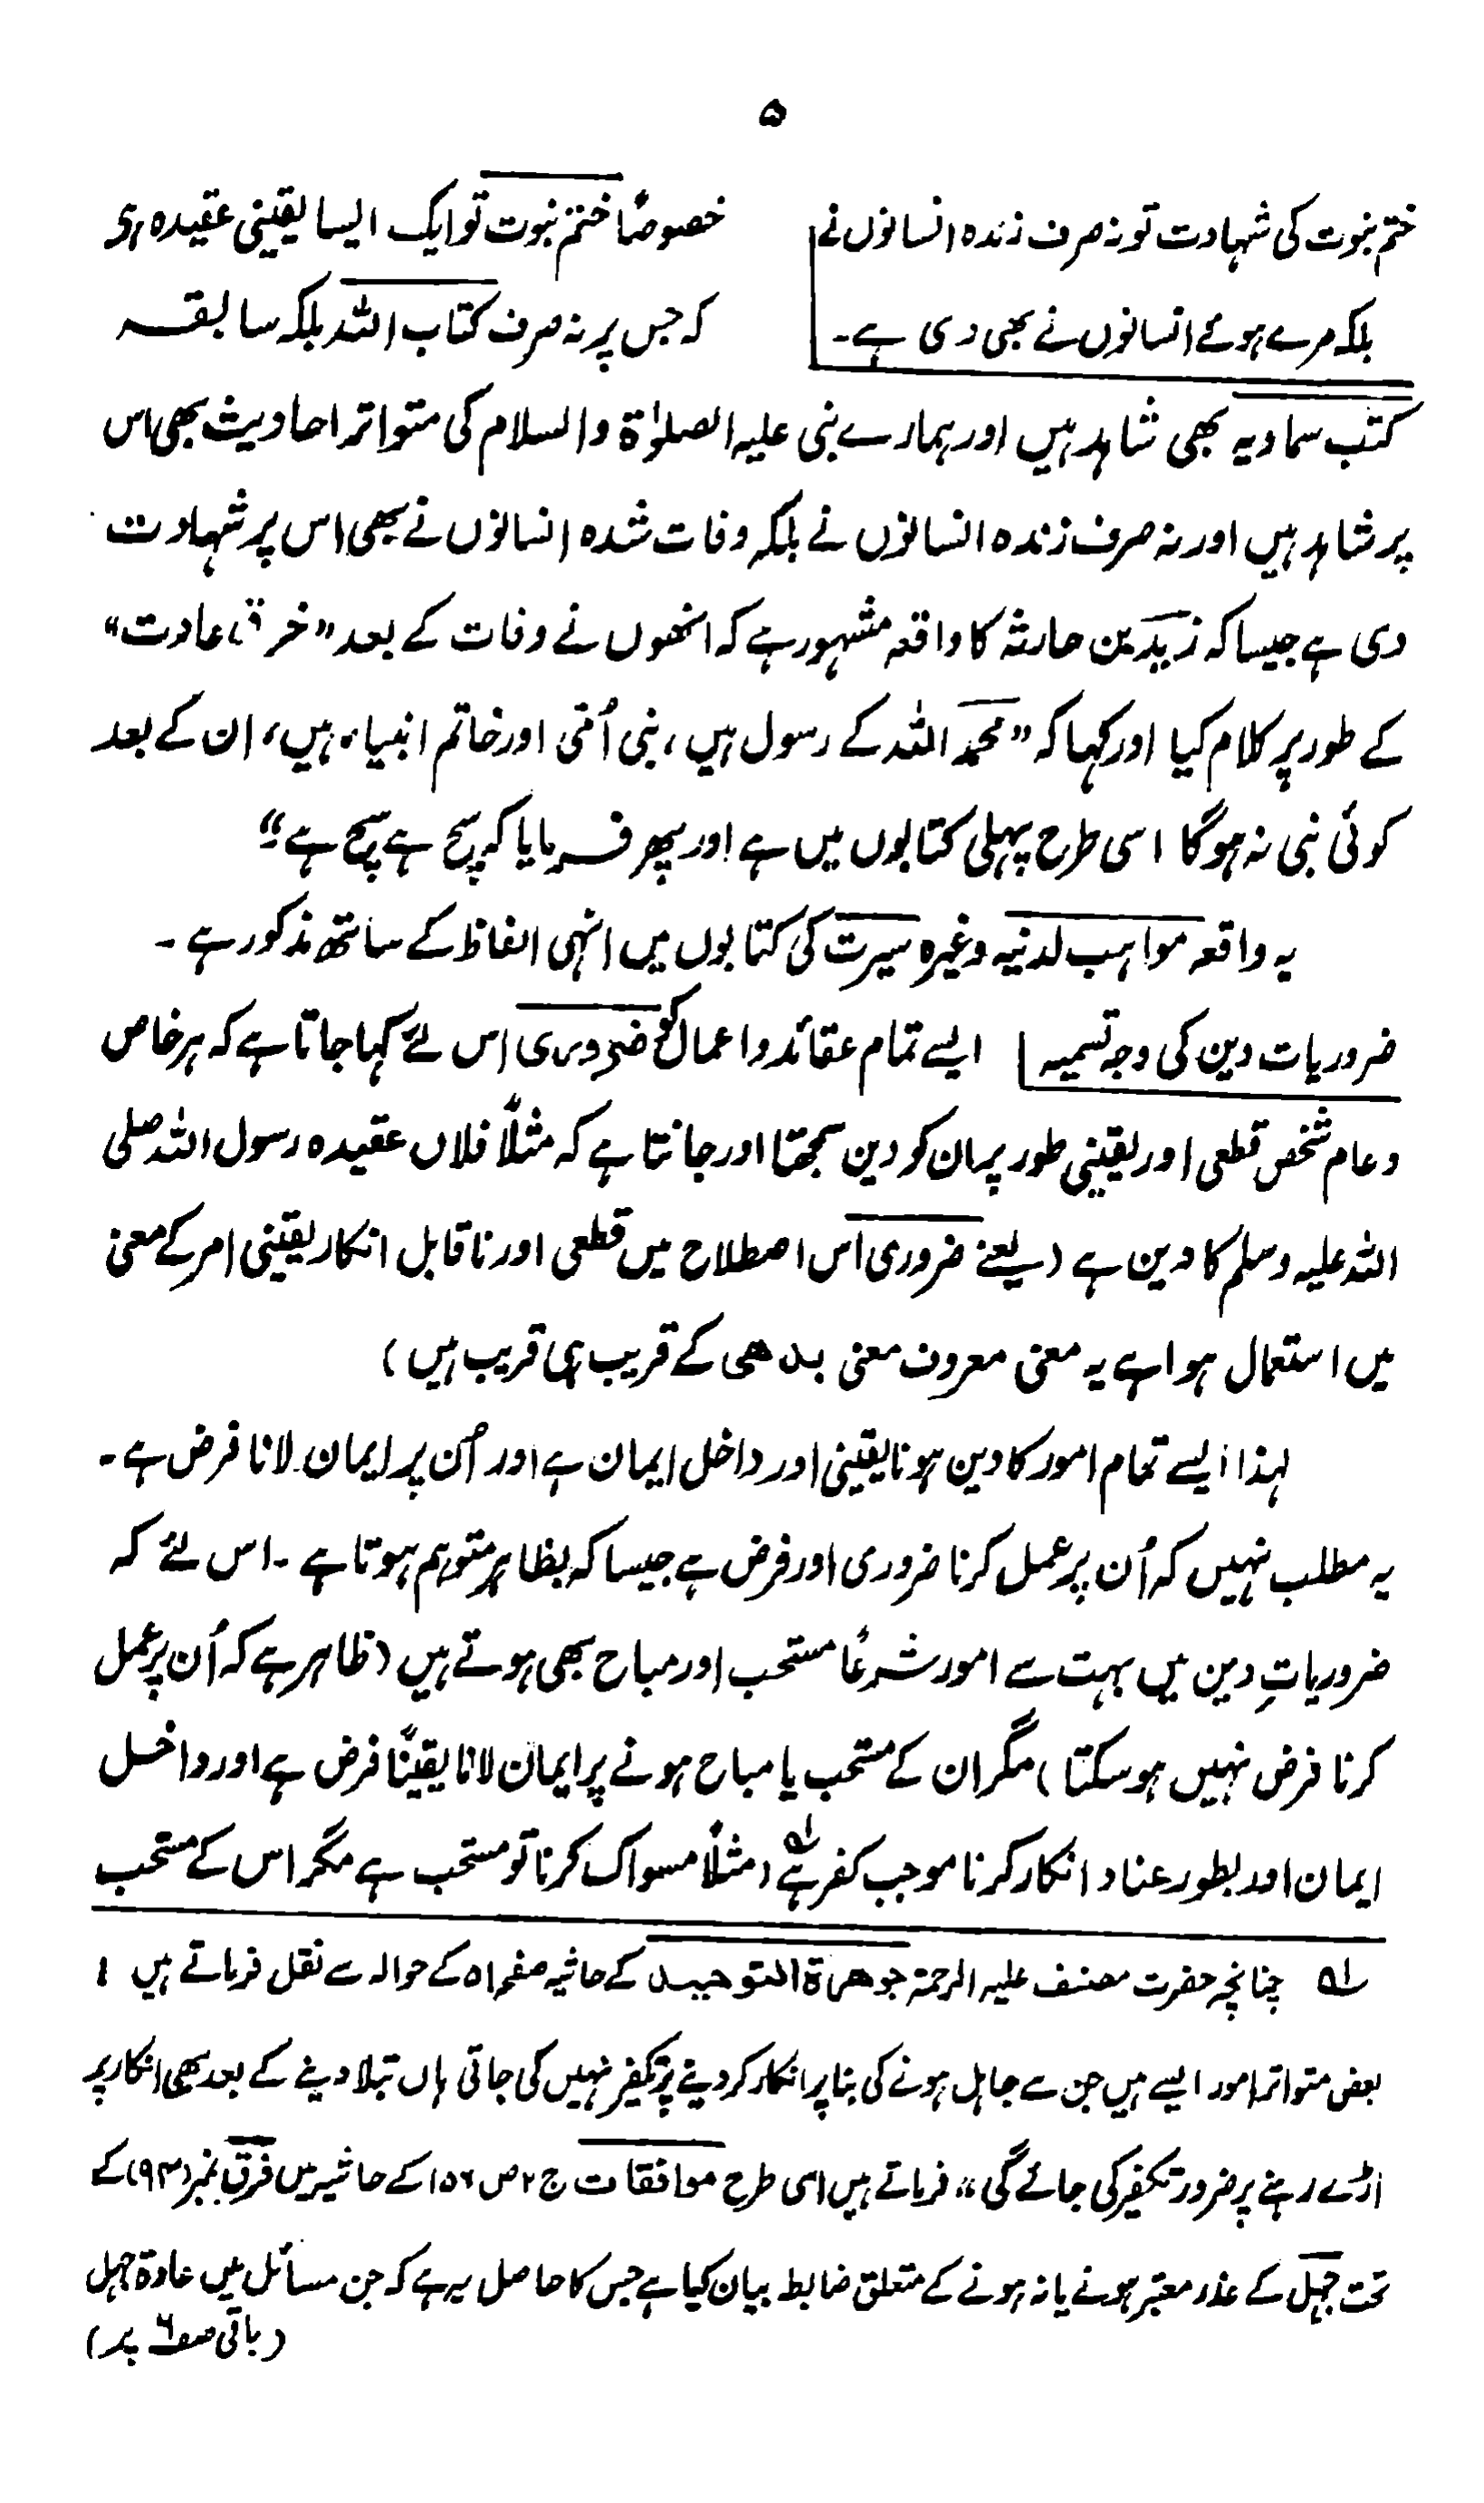 ۵
ختم نبوت کی شہادت تو نہ صرف زندہ انسانوں نے
بلکہ مرے ہوئے انسانوں نے بھی دی ہے۔
خصوصاً ختم نبوت تو ایک ایسا یقینی عقیدہ ہے
کہ جس پر نہ صرف کتاب اللہ بلکہ سابقہ
کتب سماویہ بھی شاہد ہیں اور ہمارے نبی علیہ الصلوٰۃ والسلام کی متواتر احادیث بھی اس
پر شاہد ہیں اور نہ صرف زندہ انسانوں نے بلکہ وفات شدہ انسانوں نے بھی اس پر شہادت
دی ہے جیسا کہ زید بن حارثہ کا واقعہ مشہور ہے کہ انھوں نے وفات کے بعد "خرق عادت"
کے طور پر کلام کیا اور کہا کہ "محمد اللہ کے رسول ہیں، نبی اُمّی اور خاتم انبیاء ہیں، ان کے بعد
کوئی نبی نہ ہوگا اسی طرح پہلی کتابوں میں ہے اور پھر فرمایا کہ سچ ہے سچ ہے"
یہ واقعہ مواہب لدنیہ وغیرہ سیرت کی کتابوں میں انہی الفاظ کے ساتھ مذکور ہے۔
ضروریات دین کی وجہ تسمیہ ایسے تمام عقائد و اعمال کو ضروری اس لئے کہا جاتا ہے کہ ہر خاص
و عام شخص قطعی اور یقینی طور پر ان کو دین سمجھتا اور جانتا ہے کہ مثلاً فلاں عقیدہ رسول اللہ صلی
اللہ علیہ وسلم کا دین ہے (یعنے ضروری اس اصطلاح میں قطعی اور ناقابل انکار یقینی امر کے معنی
میں استعمال ہوا ہے یہ معنی معروف معنی بدھی کے قریب ہی قریب ہیں)
لہذا ایسے تمام امور کا دین ہونا یقینی اور داخل ایمان ہے اور اُن پر ایمان لانا فرض ہے۔
یہ مطلب نہیں کہ اُن پر عمل کرنا ضروری اور فرض ہے جیسا کہ بظاہر متوہم ہوتا ہے۔ اس لئے کہ
ضروریاتِ دین میں بہت سے امور شرعاً مستحب اور مباح بھی ہوتے ہیں (ظاہر ہے کہ اُن پر عمل
کرنا فرض نہیں ہو سکتا) مگر ان کے مستحب یا مباح ہونے پر ایمان لانا یقیناً فرض ہے اور داخل
ایمان اور بطور عناد انکار کرنا موجب کفر ہے لہ (مثلاً مسواک کرنا تو مستحب ہے مگر اس کے مستحب
لہ چنانچہ حضرت مصنف علیہ الرحمۃ جوھرۃ التوحید کے حاشیہ صفحہ ۵۱ کے حوالہ سے نقل فرماتے ہیں :
بعض متواتر امور ایسے ہیں جن سے جاہل ہونے کی بنا پر انکار کر دینے پر تکفیر نہیں کی جاتی ہاں بتلا دینے کے بعد بھی انکار پر
اڑے رہنے پر ضرور تکفیر کی جائے گی" فرماتے ہیں اسی طرح موافقات ج ۲ ص ۱۵۶ کے حاشیہ میں فرق نمبر (۹۴) کے
تحت جہل کے عذر معتبر ہونے یا نہ ہونے کے متعلق ضابطہ بیان کیا ہے جس کا حاصل یہ ہے کہ جن مسائل میں عادۃ جہل
(باقی صفحہ ٦ پر)